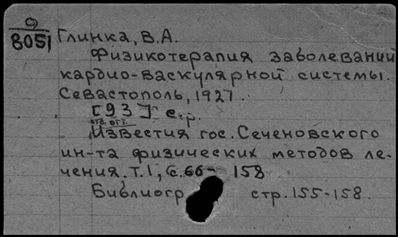 9)
8051 Глинка, В.А.
Физикотерапия заболеваний
кардио-васкулярной системы.
Севастополь, 1927.
[93] с.
отд. отт.
Известия гос. Сеченовского
ин-та физических методов ле-
чения. Т.1, с.66- 158
Библиогр стр. 155-158.